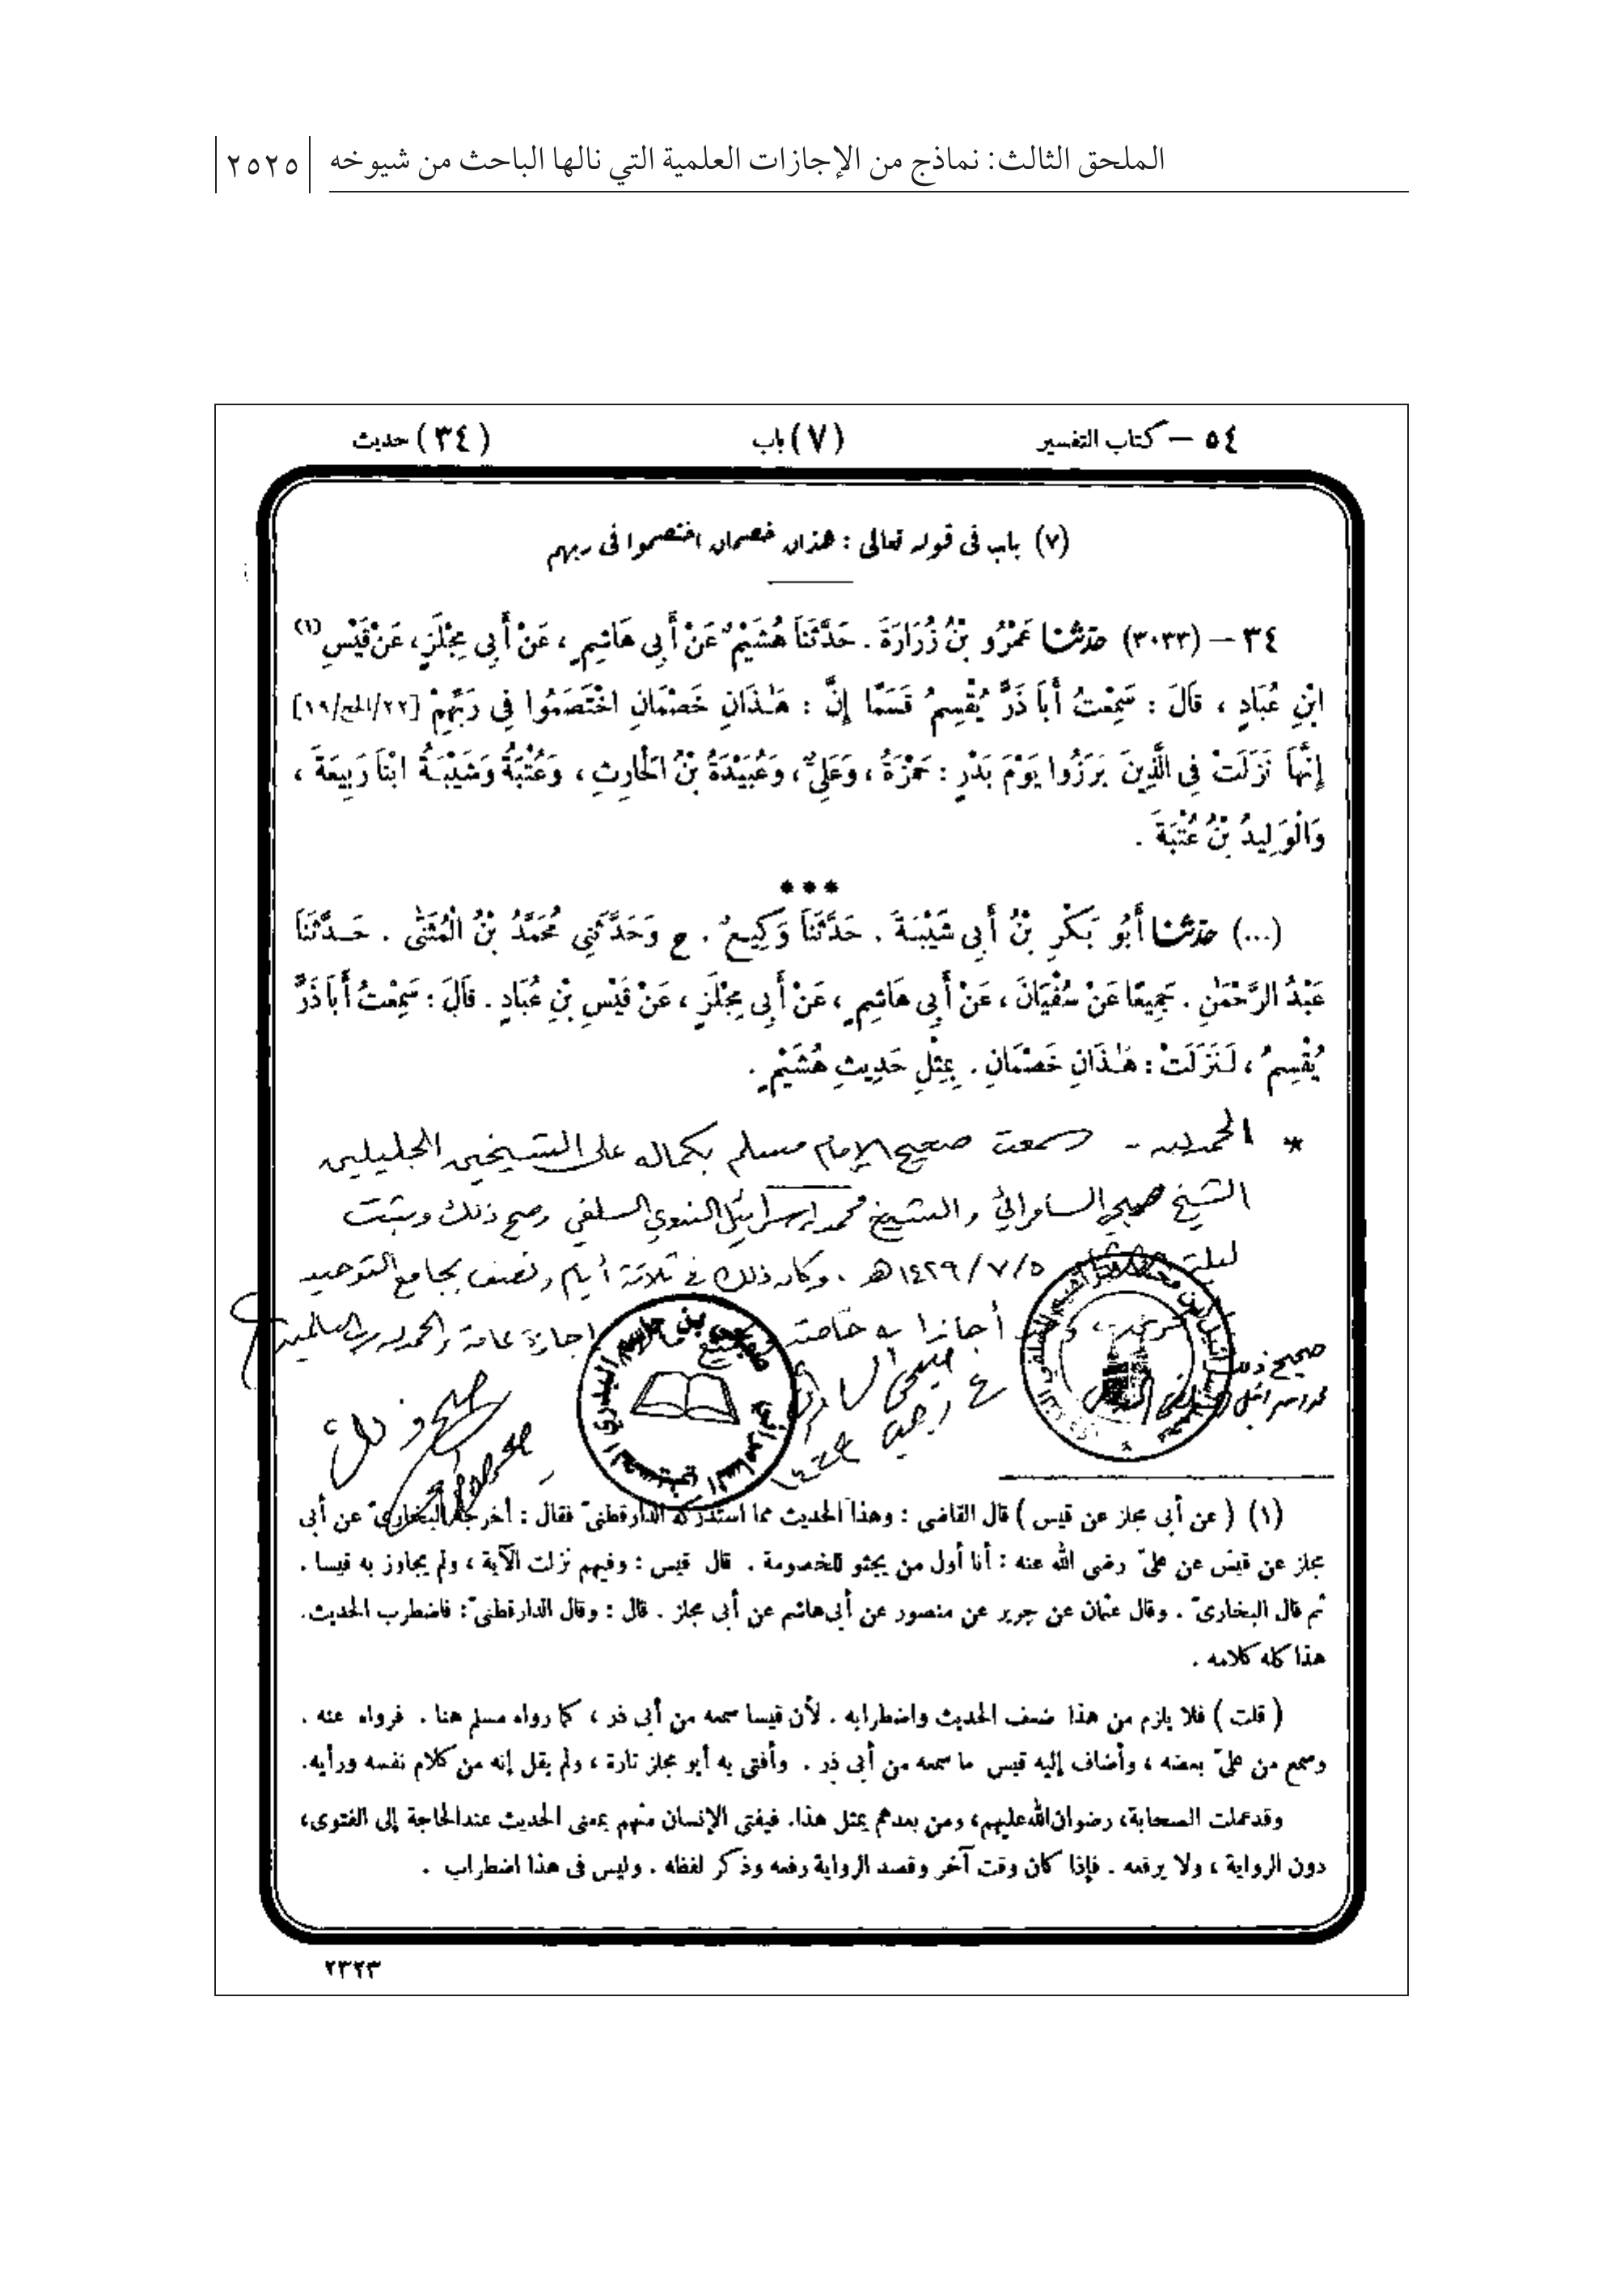 الملحق الثالث: نماذج من الإجازات العلمية التي نالها الباحث من شيوخه ٢٥٢٥
٥٤ – كتاب التفسير (٧) باب (٣٤) حديث
(٧) باب فى قوله تعالى : هذان خصمان اختصموا فى ربهم
٣٤ – (٣٠٣٣) حدثنا عَمْرُو بْنُ زُرَارَةَ . حَدَّثَنَا هُشَيْمٌ عَنْ أَبِي هَاشِمٍ ، عَنْ أَبِي مِجْلَزٍ ، عَنْ قَيْسِ (١)
ابْنِ عُبَادٍ ، قَالَ : سَمِعْتُ أَبَا ذَرٍّ يُقْسِمُ قَسَمًا إِنَّ : هَٰذَانِ خَصْمَانِ اخْتَصَمُوا فِي رَبِّهِمْ [٢٢/الحج/١٩]
إِنَّهَا نَزَلَتْ فِي الَّذِينَ بَرَزُوا يَوْمَ بَدْرٍ : حَمْزَةُ ، وَعَلِيٌّ ، وَعُبَيْدَةُ بْنُ الْحَارِثِ ، وَعُتْبَةُ وَشَيْبَةُ ابْنَا رَبِيعَةَ ،
وَالْوَلِيدُ بْنُ عُتْبَةَ .
***
(...) حدثنا أَبُو بَكْرِ بْنُ أَبِي شَيْبَةَ . حَدَّثَنَا وَكِيعٌ . ح وَحَدَّثَنِي مُحَمَّدُ بْنُ الْمُثَنَّى . حَدَّثَنَا
عَبْدُ الرَّحْمَٰنِ . جَمِيعًا عَنْ سُفْيَانَ ، عَنْ أَبِي هَاشِمٍ ، عَنْ أَبِي مِجْلَزٍ ، عَنْ قَيْسِ بْنِ عُبَادٍ . قَالَ : سَمِعْتُ أَبَا ذَرٍّ
يُقْسِمُ ، لَنَزَلَتْ : هَٰذَانِ خَصْمَانِ . بِمِثْلِ حَدِيثِ هُشَيْمٍ .
* الحمد لله - سمعت صحيح الإمام مسلم بكماله على الشيخين الجليلين
الشيخ صبحي السامرائي والشيخ محمد إسرائيل الندوي السلفي وصح ذلك وثبت
ليلة ٥/٧/١٤٢٩هـ . وكان ذلك في ثلاثة أيام ونصف بجامع التوحيد
أجازنا به خاصة إجازة عامة والحمد لله رب العالمين
صحيح ذلك
صبحي السامرائي
صح ذلك
صبحي بن جاسم البدري الحسيني السامرائي
(١) ( عن أبى مجلز عن قيس ) قال القاضى : وهذا الحديث مما استدركه الدارقطنىّ فقال : أخرجه البخارىّ عن أبى
مجلز عن قيس عن علىّ رضى الله عنه : أنا أول من يجثو للخصومة . قال قيس : وفيهم نزلت الآية ، ولم يجاوز به قيسا .
ثم قال البخارىّ . وقال عثمان عن جرير عن منصور عن أبى هاشم عن أبى مجلز . قال : وقال الدارقطنىّ : فاضطرب الحديث.
هذا كله كلامه .
( قلت ) فلا يلزم من هذا ضعف الحديث واضطرابه . لأن قيسا سمعه من أبى ذر ، كما رواه مسلم هنا . فرواه عنه .
وسمع من علىّ بعضه ، وأضاف إليه قيس ما سمعه من أبى ذر . وأفتى به أبو مجلز تارة ، ولم يقل إنه من كلام نفسه ورأيه.
وقد عملت الصحابة، رضوان الله عليهم، ومن بعدهم بمثل هذا. فيفتى الإنسان منهم بمعنى الحديث عند الحاجة إلى الفتوى،
دون الرواية ، ولا يرفعه . فإذا كان وقت آخر وقصد الرواية رفعه وذكر لفظه . وليس فى هذا اضطراب .
٢٣٢٣